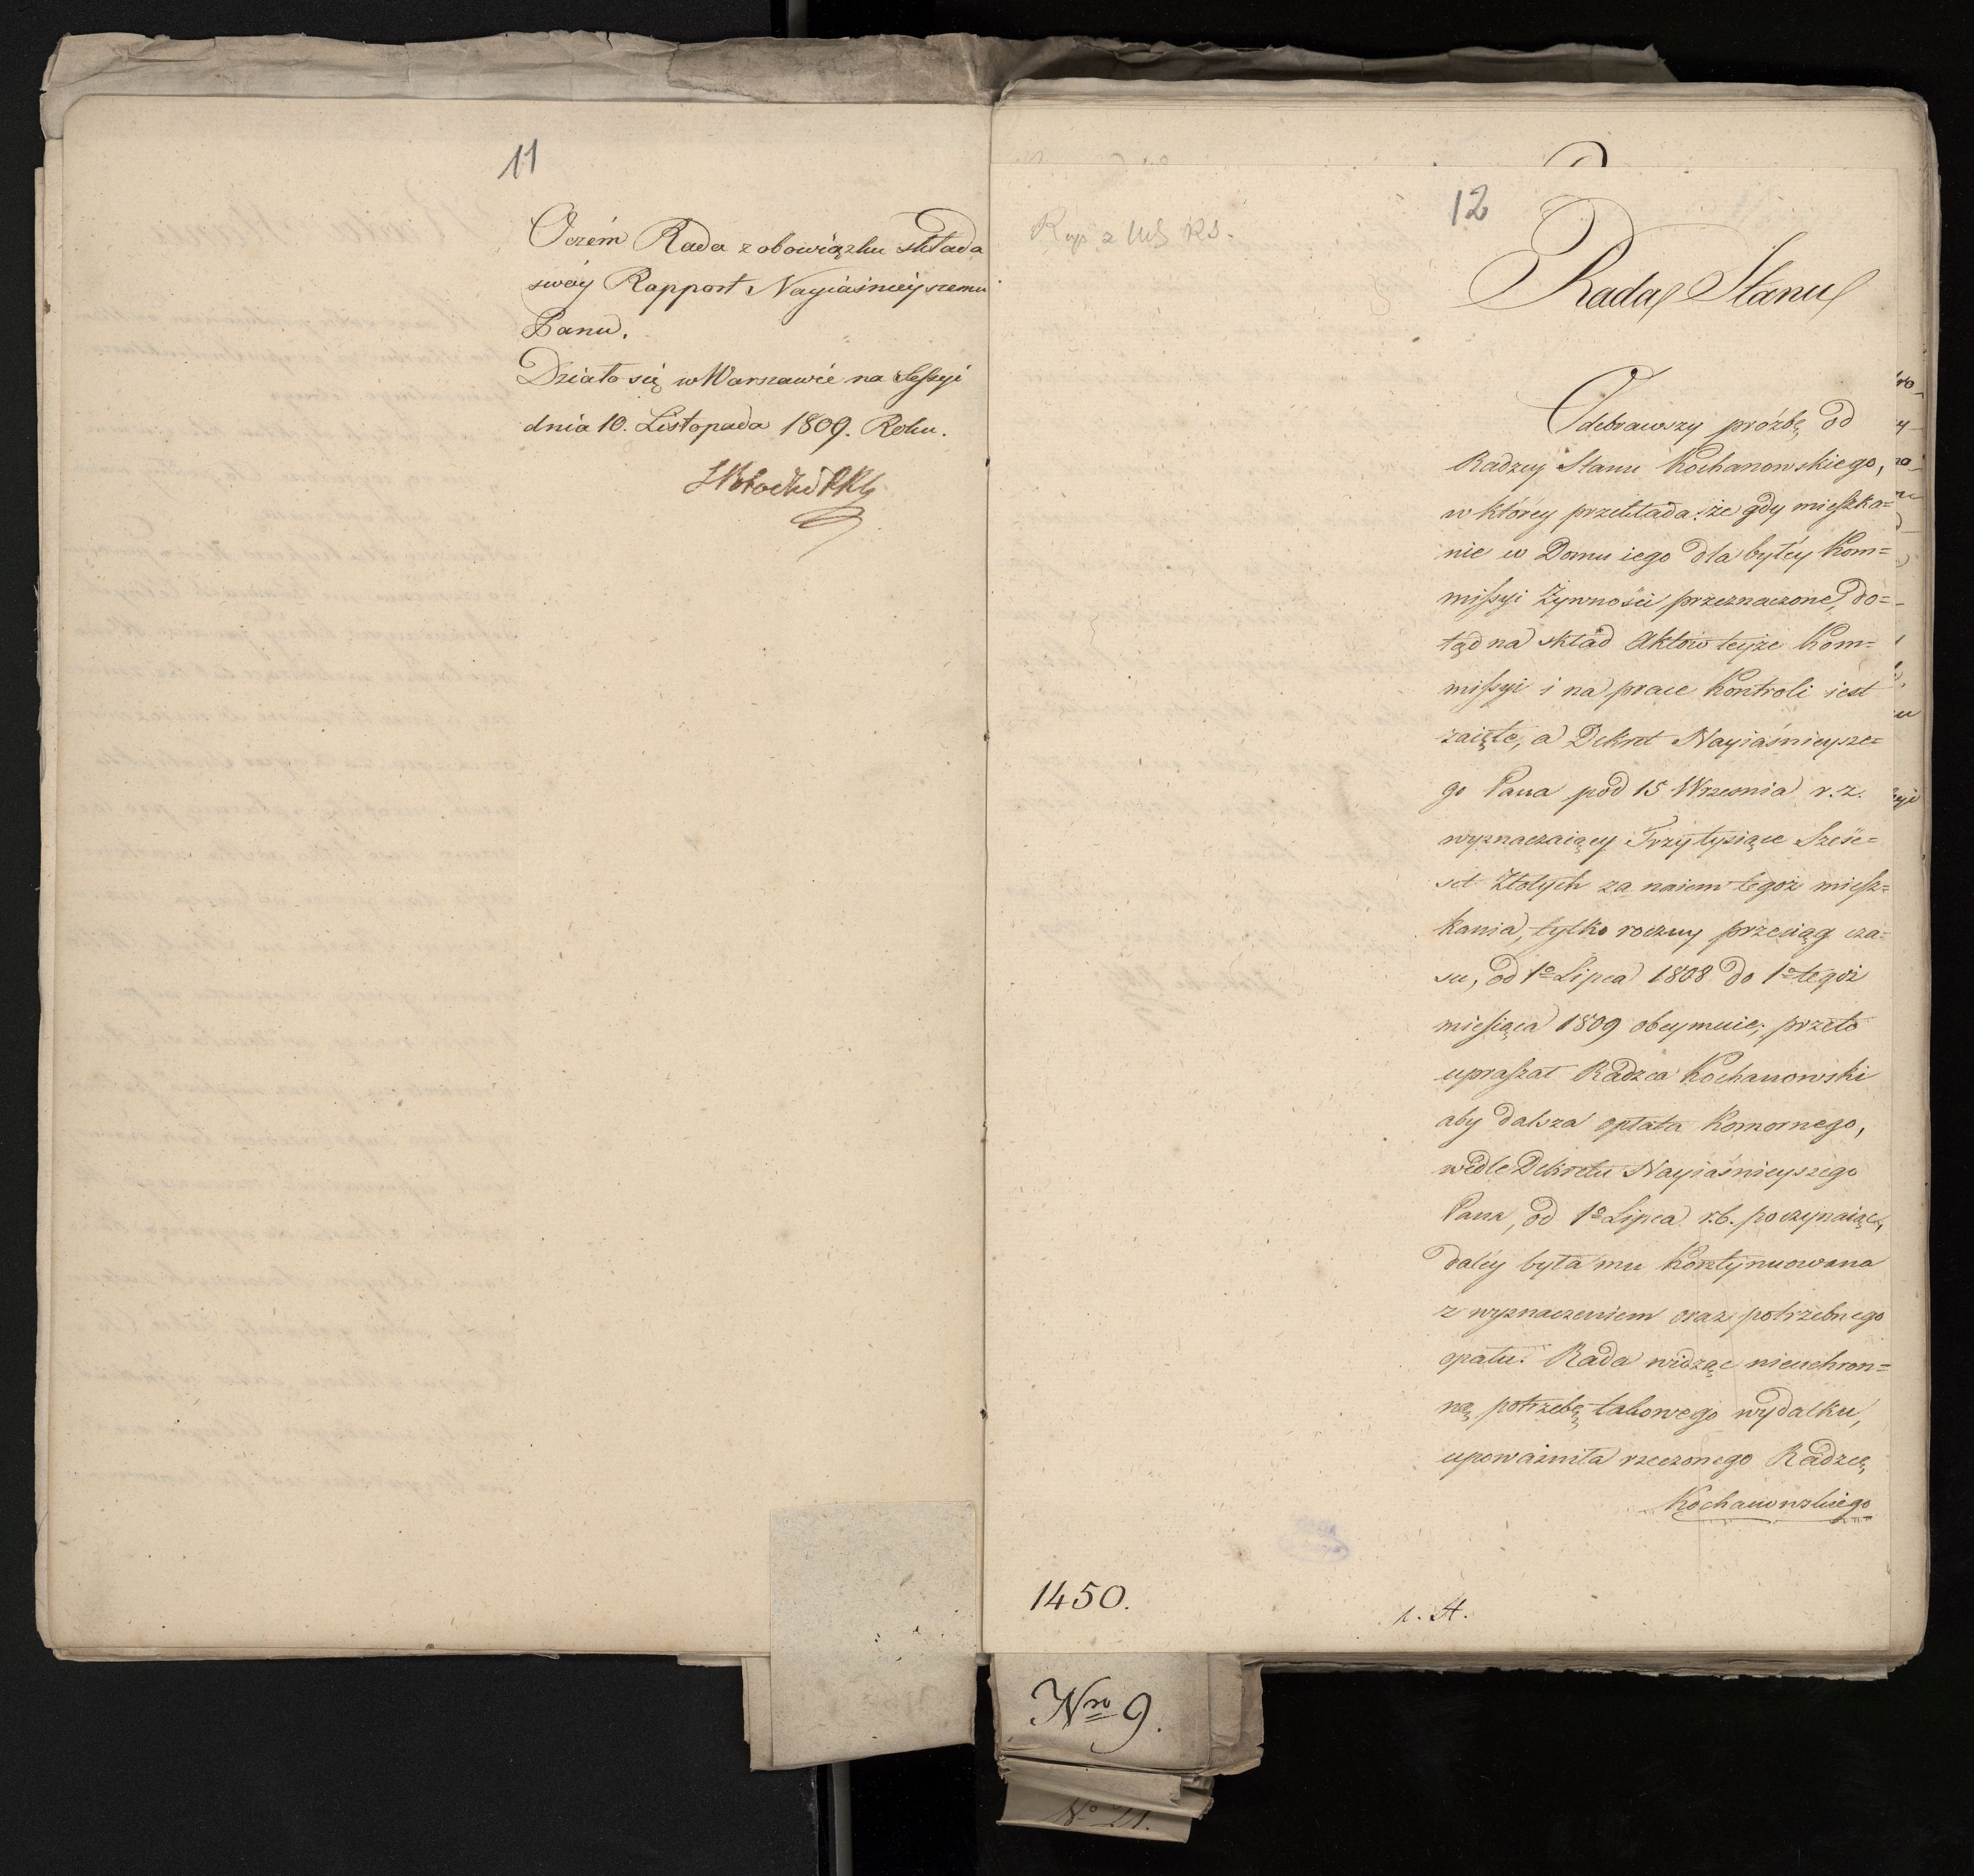 11
Oczém Rada z obowiązku składa
swóy Rapport Nayiaśnieyszemu
Panu.
Działo się w Warszawie na Sessyi
dnia 10. Listopada 1809. Roku.
12
Rada Stanu
Odebrawszy próźbę od
Radzcy Stanu Kochanowskiego,
w którey przekłada: że gdy mieszka=
nie w Domu iego dla byłéy Kom=
missyi Żywności przeznaczone, do=
tąd na skład Aktów teyże Kom=
missyi i na prace Kontroli iest
zaięte, a Dekret Nayiaśnieysze=
go Pana pod 15 Wrzesnia r. z.
wyznaczaiący Trzy tysiące Sześć=
set Złotych za naiem tegoż miesz=
kania, tylko roczny przeciąg cza=
su, od 1o Lipca 1808 do 1o tegoż
miesiąca 1809 obeymuie; przeto
upraszał Radzca Kochanowski
aby dalsza opłata Komornego,
wedle Dekretu Nayiaśnieyszego
Pana, od 1o Lipca r. b. poczynaiąc,
daléy była mu Kontynuowana
z wyznaczeniem oraz potrzebnego
opału. Rada widząc nieuchron=
ną potrzebę takowego wydatku,
upoważniła rzeczonego Radzcę
Kochanowskiego
1450.
Nro 9.
No 21.